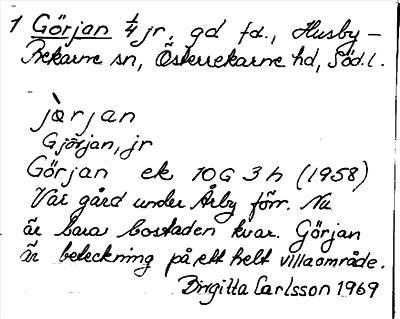 1 Görjan 1/4 jr, gd fd., Husby-
Rekarne sn, Österrekarne hd, Söd.l.
jörjan
Gjörjan, jr
Görjan ek 10G 3h (1958)
Var gård under Årby förr. Nu
är bara bostaden kvar. Görjan
är beteckning på ett helt villaområde.
Birgitta Carlsson 1969